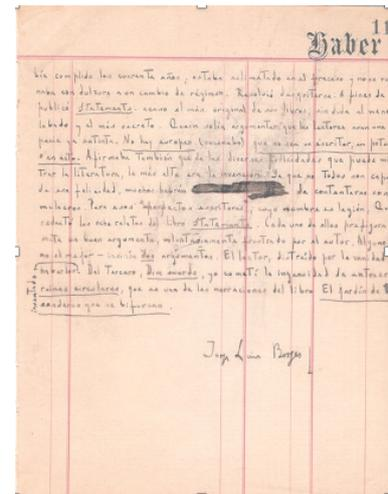 11
Haber
bía cumplido los cuarenta años; estaba aclimatado en el fracaso y no se
naba con dulzura a un cambio de régimen. Resolvió desquitarse. A fines de
publicó Statements: acaso el más original de sus libros, sin duda el men
labado y el más secreto. Quain solía argumentar que los lectores eran una
pecie ya extinta. No hay europeo (razonaba) que no sea un escritor, en poten
o en acto. Afirmaba también que de las diversas felicidades que puede
trar la literatura, la más alta era la invención. Ya que no todos son cap
de esa felicidad, muchos habrán de contentarse con
mulacros. Para esos "imperfectos escritores", cuyo nombre es legión, Qu
redactó los ocho relatos del libro Statements. Cada uno de ellos prefigura
mete un buen argumento, voluntariamente frustrado por el autor. Alguno
no el mejor—insinúa dos argumentos. El lector, distraído por la vanidad
inventado
Del tercero, yo cometí la ingenuidad de extraer
ruinas circulares, que es una de las narraciones del libro El jardín de
senderos que se bifurcan.
Jorge Luis Borges